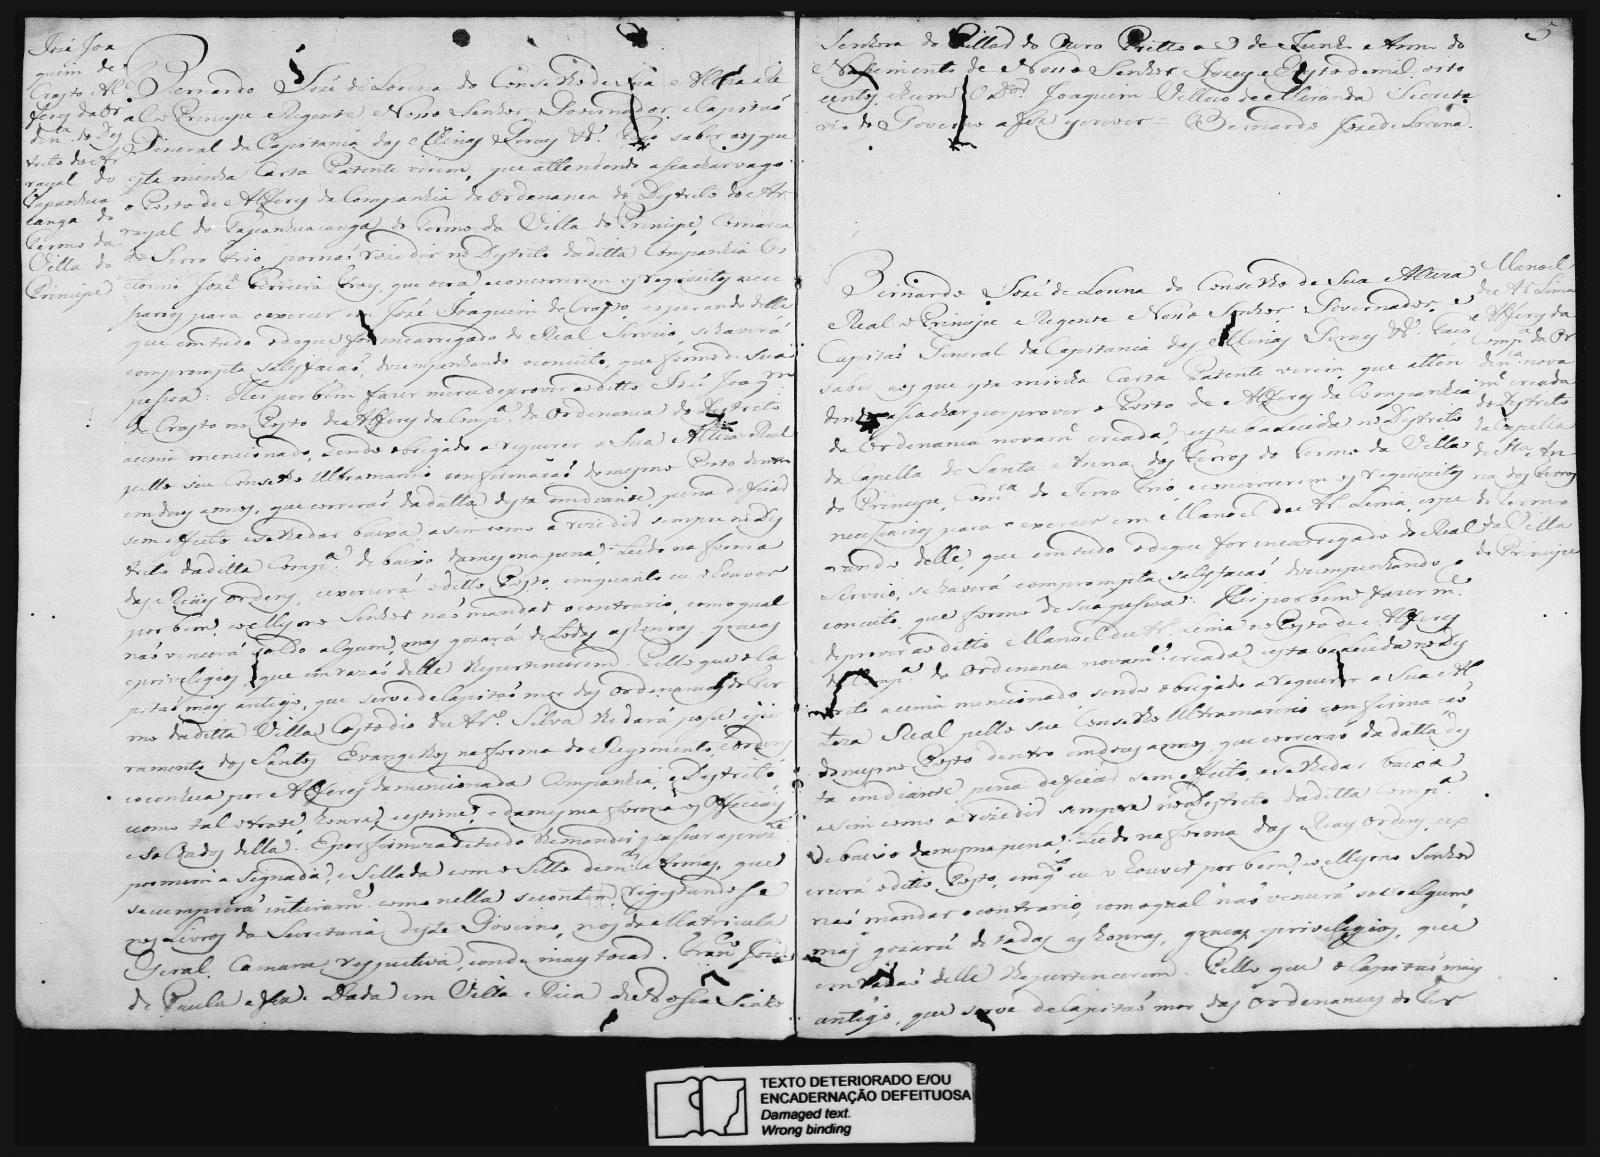 José Joa
quim de
Crasto Al
feres da Or
den.ª do Des
tricto do Ar
rayal do
Tapanhua
canga do
Termo da
Villa do
Principe
Bernardo José de Lorena do Conselho de Sua Alteza
Real o Principe Regente Nosso Senhor, Governador, e Capitaõ
General da Capitania das Minas Geraes &ª. Faço saber aos que
esta minha Carta Patente virem, que attendendo a se achar vago
o Posto de Alferes da Companhia da Ordenança do Destricto do Ar
rayal de Tapanhuacanga do Termo da Villa do Principe, Comarca
do Serro Frio, por naõ rezidir no Destricto da ditta Companhia
José Ferreira que era, e concorrerem os requizitos nece
sarios para o exercer em José Joaquim de Crasto, esperando delle
que em tudo o de que for encarregado do Real Serviço, se haverá
com prompta satisfacaõ, dezempenhando o conceito, que formo de sua
pessoa: Hei por bem fazer merce de prover ao ditto José Joaq.m
de Crasto no Posto de Alferes da Comp.ª da Ordenança do Destricto
acima mencionado, sendo obrigado a requerer a Sua Alteza Real
pello seu Conselho Ultramarino confirmaçaõ do mesmo Posto dentro
em dous annos, que correraõ da datta desta em diante, pena de ficar
sem effeito, e se lhe dar baixa, asim como a rezidir sempre no Des
tricto da ditta Comp.ª de baixo da mesma pena: Tudo na forma
das Reaes Ordens, e exercerá o ditto Posto, emquanto eu o houver
por bem, e o Mesmo Senhor naõ mandar o contrario, com o qual
naõ vencerá soldo algum, mas gozará de todas as honras, graças
e privilegios, que em razaõ delle lhe pertencerem. Pello que o Ca
pitaõ mais antigo, que serve de Capitaõ mor das Ordenanças do Ter
mo da ditta Villa Custodio de Ar.º Silva lhe dará posse, e ju
ramento dos Santos Evangelhos na forma do Regimento, e Ordens
o conheça por Alferes da mencionada Companhia, e Destricto,
como tal o trate, honre, e estime, e da mesma forma os Officiaes
e Soldados della. E por firmeza de tudo lhe mandei passar a prez.te
por mim asignada, e sellada com o Sello de m.as Armas, que
se cumprirá inteiram.e como nella se contem, registando-se
nos Livros da Secretaria deste Governo, nos da Matricula
Geral, Camara respectiva, e onde mais tocar. Fran.co José
de Paula a fez. Dada em Villa Rica de Nossa Senho
5
Senhora do Pillar do Ouro Pretto a 9 de Junho Anno do
Nascimento de Nosso Senhor Jezus Christo de mil oito
centos, e hum. O Joaquim Velloso de Miranda Secreta
rio do Governo a fez escrever = Bernardo José de Lorena.
Bernardo José de Lorena do Conselho de Sua Alteza
Real o Principe Regente Nosso Senhor Governador, e
Capitaõ General da Capitania das Minas Geraes &ª. Faço
saber aos que esta minha Carta Patente virem que atten
dendo a se achar por prover o Posto de Alferes da Companhia
da Ordenança novam.e creada, e estabalecida no Destricto
da Capella de Santa Anna dos Ferros do Termo da Villa
do Principe, Com.ca do Serro Frio, e concorrerem os requizitos
necessarios para o exercer em Manoel de Ar.º Lima, espe
rando delle, que em tudo o de que for encarregado do Real
Serviço, se haverá com prompta satisfacaõ dezempenhando o
conceito, que formo de sua pessoa: Hei por bem fazer m.ce
de prover ao ditto Manoel de Ar.º Lima no Posto de Alferes
da Comp.ª da Ordenança novam.e creada, e estabalecida no Des
tricto acima mencionado, sendo obrigado a requerer a Sua Al
teza Real pello seu Conselho Ultramarino confirmaçaõ
do mesmo Posto dentro em dous annos, que correraõ da datta des
ta em diante, pena de ficar sem effeito, e se lhe dar baixa,
asim como a rezidir sempre no Destricto da ditta Comp.ª
de baixo da mesma pena: Tudo na forma das Reaes Ordens, e ex
ercerá o ditto Posto, emq.to eu o houver por bem, e o Mesmo Senhor
naõ mandar o contrario, com o qual naõ vencerá soldo algum,
mas gozará de todas as honras, graças, e privilegios, que
em razaõ delle lhe pertencerem. Pello que o Capitaõ mais
antigo, que serve de Capitaõ mor das Ordenanças do Ter
Manoel
de Ar.º Lima
Alferes da
Comp.ª da Or
den.ca nova
m.e creada
do Destricto
da Capella
de S.ta An
na dos Ferros
do Termo
da Villa
do Principe
TEXTO DETERIORADO E/OU
ENCADERNAÇÃO DEFEITUOSA
Damaged text.
Wrong binding